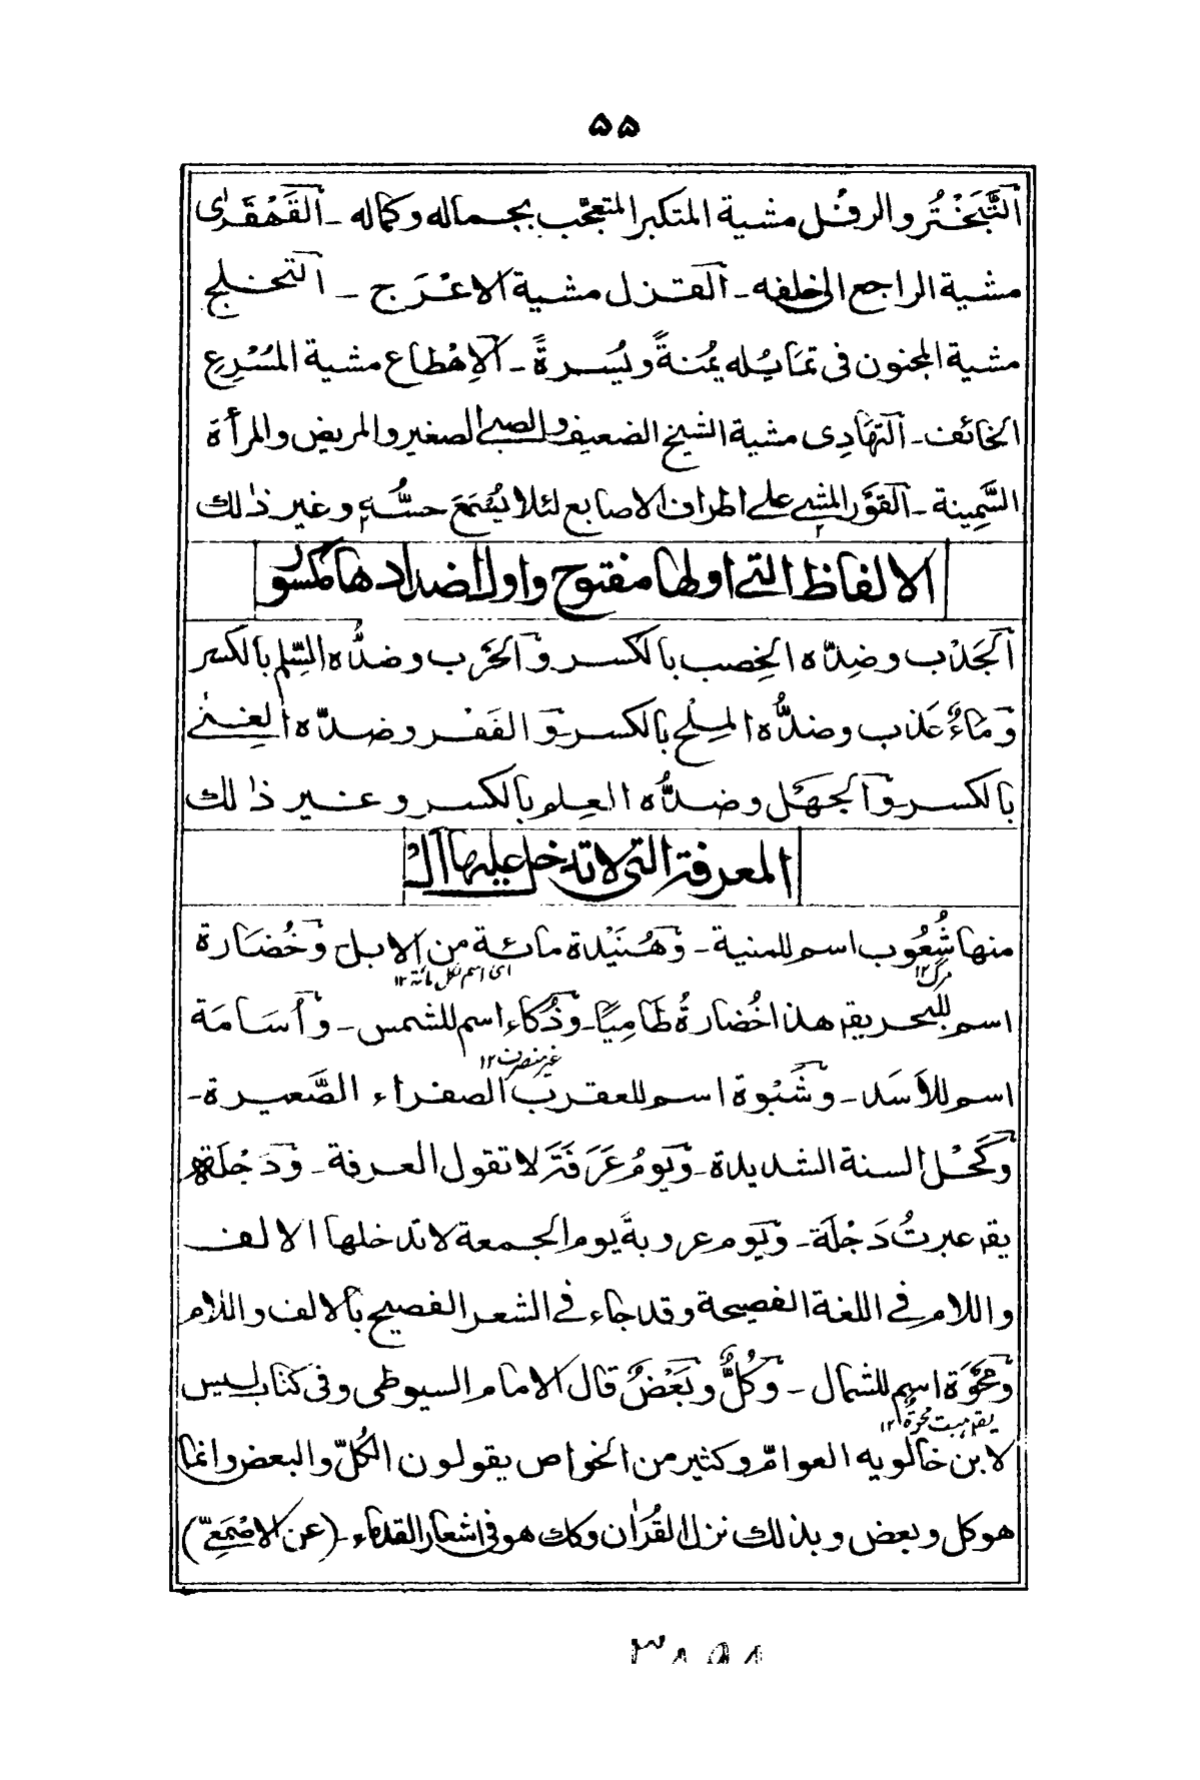 ۵۵
اَلتَّبَخْتُر والرفل مشية المتكبر المتعجّب بجماله وكماله ـ اَلقَهْقَرٰى
مشية الراجع الى خلفه ـ اَلقزل مشية الاعْرَج ـ اَلتخلج
مشية المجنون فى تمَايُله يمُنةً ويُسرةً ـ اَلاِهْطاع مشية المُسْرِعِ
الخائف ـ اَلتهَادِى مشية الشيخ الضعيف والصبى الصغير والمريض والمرأة
السَّمِينة ـ اَلقوَّر المشى على اطراف الاصابع لئلا يُسْمَعَ حسُّه وغير ذٰلك
الالفاظ التى اولها مفتوح واول اضدادها مكسور
اَلجَدْب وضِدّه الخِصب بالكسر وَاَلحَرْب وضدُّه السِّلم بالكسر
وَمَاءٌ عَذب وضدُّه المِلْح بالكسر وَ الفَقْر وضدّه الغِنٰى
بالكسر وَاَلجَهْل وضدُّه العِلم بالكسر وغير ذٰلك
المعرفة التى لا تدخل عليها اَلْ
منها شُعُوب اسم للمنية ـ وَهُنَيْدة مائة من الابل وَخُضَارة
مرگ ۱۲
اى اسم لكل مائة ۱۲
اسم للبحر يقہ هذا خُضارةُ طَامِيًا ـ وَذُكاء اسم للشمس ـ وَاُسَامَة
غير منصرف ۱۲
اسم للاَسَد ـ وَشَبْوة اسم للعقرب الصفراء الصَّغيرة ـ
وَكَحْل السنة الشديدة ـ وَيومُ عَرَفَةَ لا تقول العرفة ـ وَدَجْلَة
يقہ عبرتُ دَجْلَة ـ وَيَوم عروبةَ يوم الجمعة لا تدخلها الالف
واللام فى اللغة الفصيحة وقد جاء فى الشعر الفصيح بالالف واللام
وَمَحْوَة اسم للشمال ـ وَكُلٌّ وبَعْضٌ قال الامام السيوطى وفى كتاب ليس
يقہ هبت محوة ۱۲
لابن خالويه العوامّ وكثير من الخواص يقولون الكُلّ والبعض وانما
هو كل وبعض وبذلك نزل القُرْاٰن وكك هو فى اشعار القدماء ـ (عن الاصْمَعِىّ)